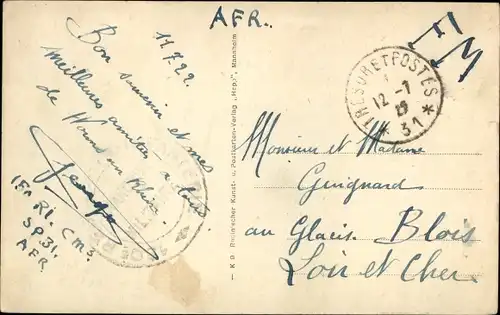 AFR.
11.7.22.
Bon souvenir et mes
meilleures amitiés à tous
de Worms on Rhin.
George
1er RI. Cm3
SP31.
AFR
— K. B. Rheinischer Kunst- u. Postkarten-Verlag „Hep.", Mannheim
FM
TRESOR ET POSTES
12-7
22
* 31 *
Monsieur et Madame
Guignard
au Glacis. Blois
Loir et Cher